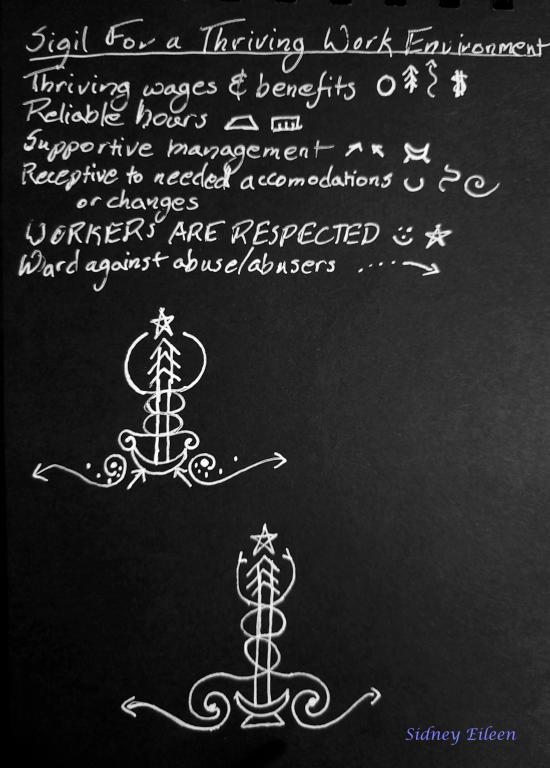 Sigil For a Thriving Work Environment
Thriving wages & benefits $
Reliable hours
Supportive management
Receptive to needed accomodations
or changes
WORKERS ARE RESPECTED
Ward against abuse/abusers
Sidney Eileen